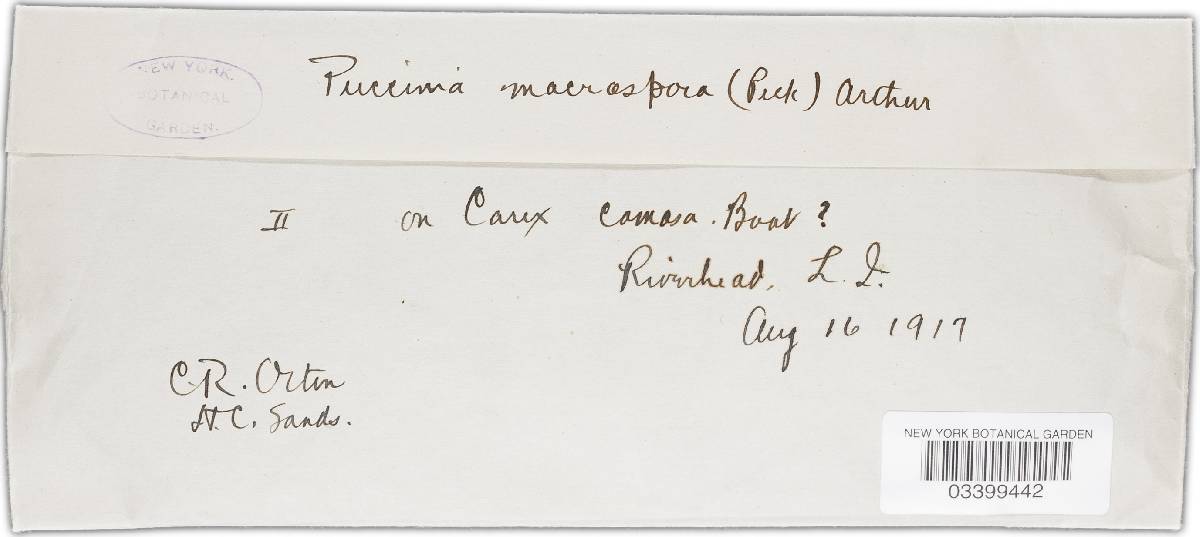 NEW YORK
BOTANICAL
GARDEN.
Puccinia macrospora (Peck) Arthur
II on Carex comosa. Boot ?
Riverhead, L. I.
Aug 16 1917
C. R. Orton
H. C. Sands.
NEW YORK BOTANICAL GARDEN
03399442